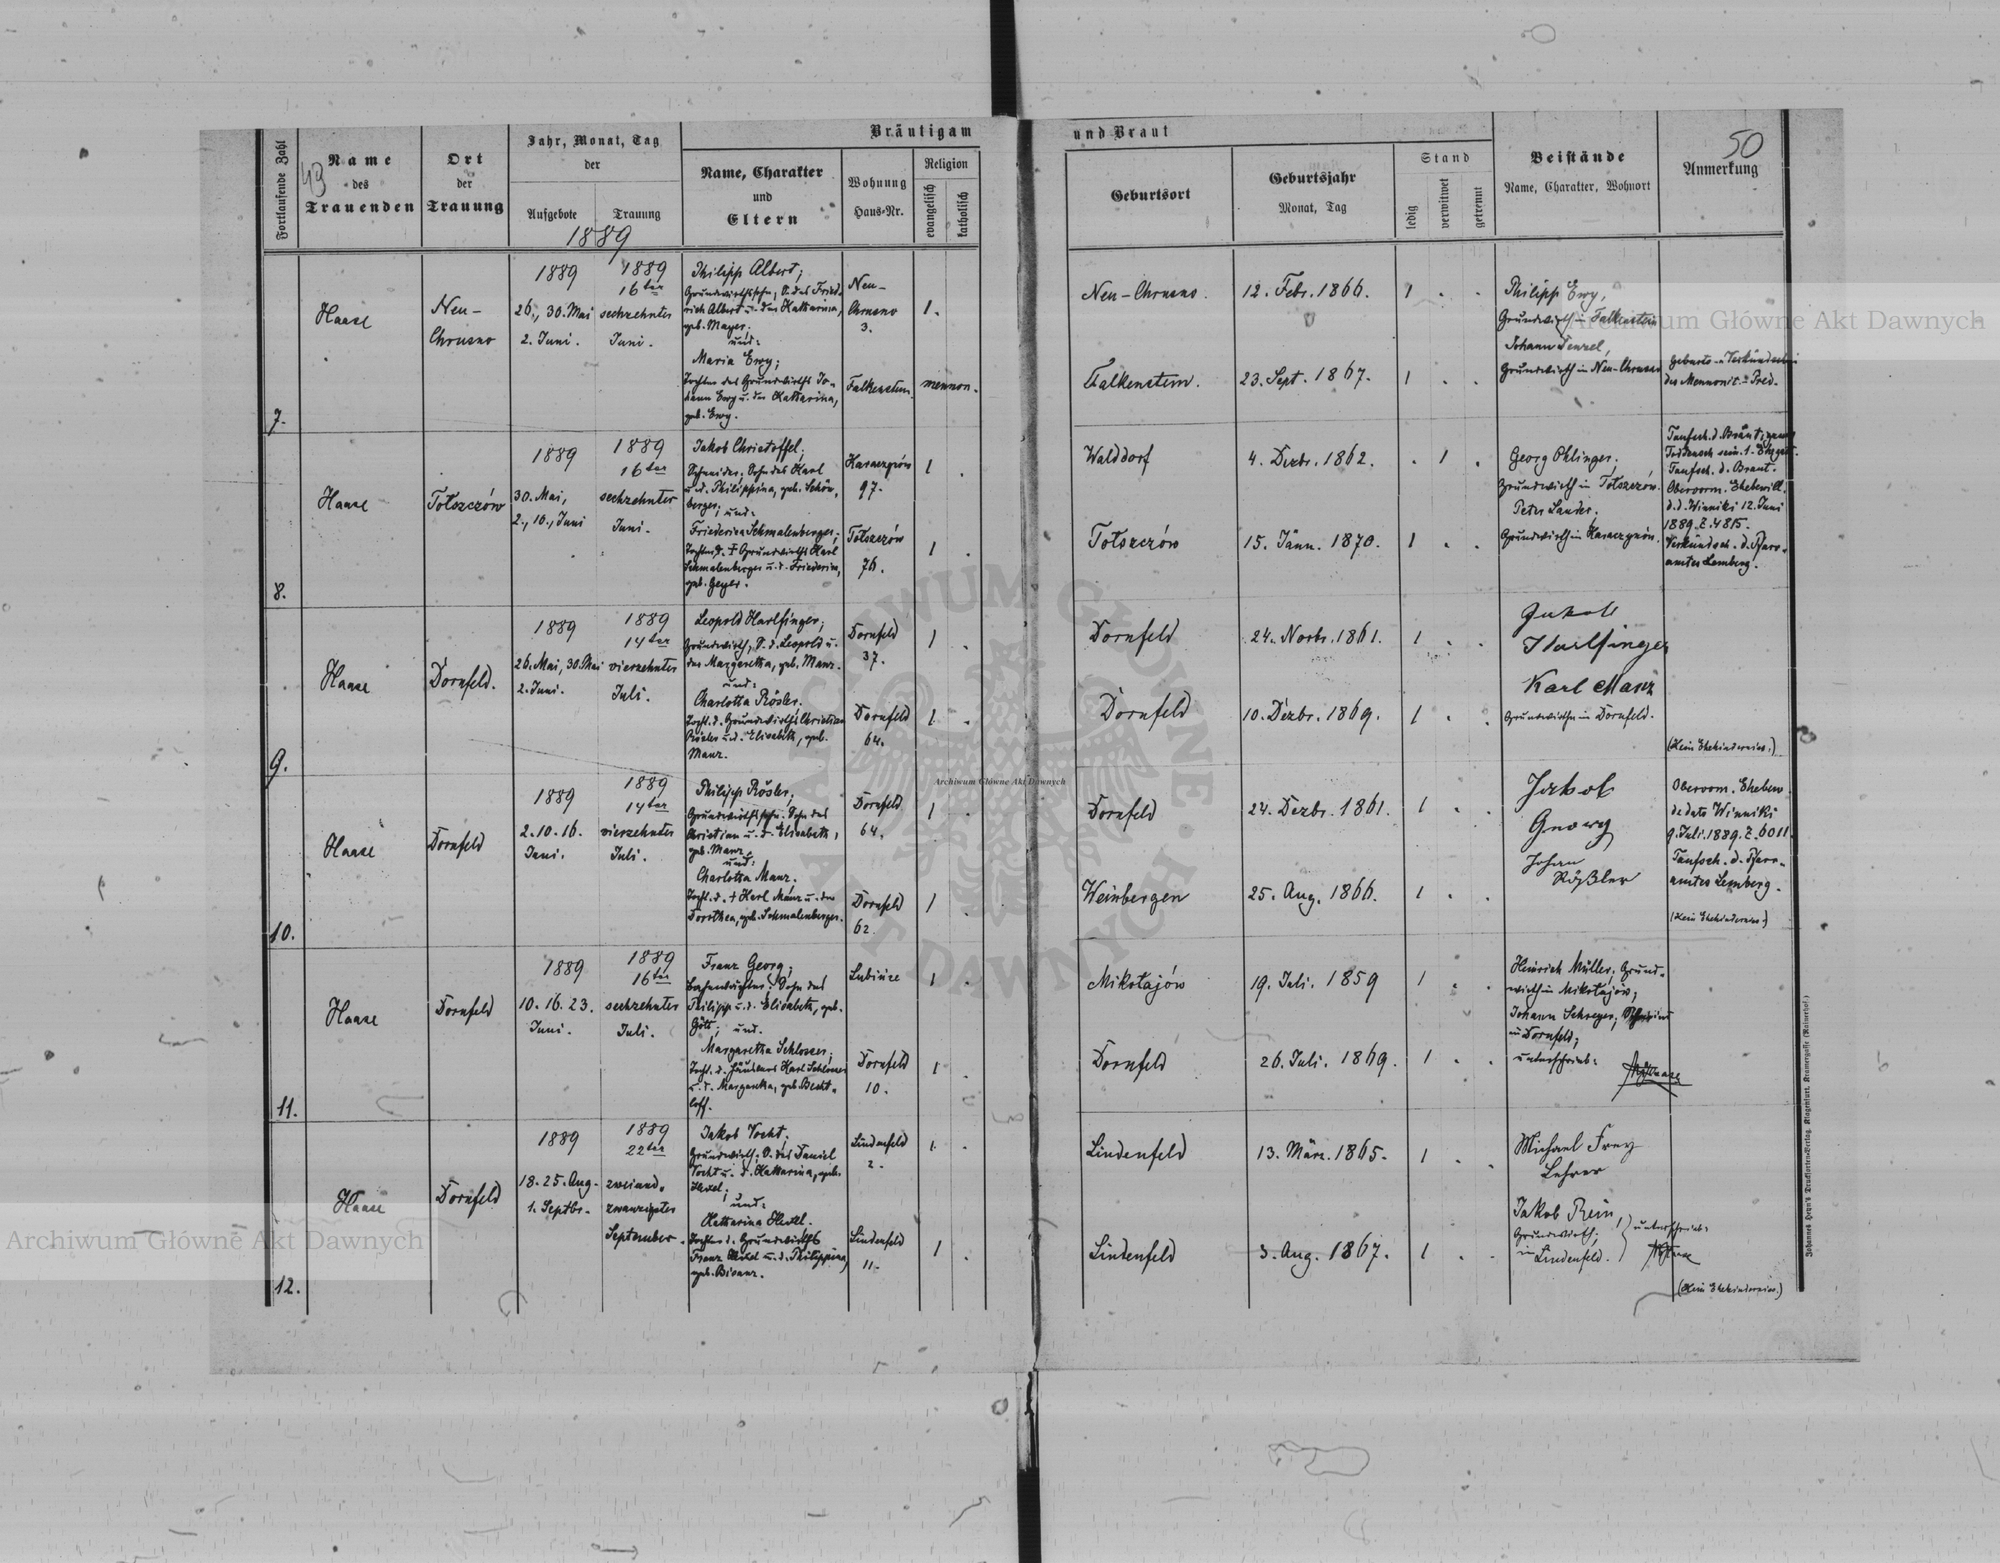 Bräutigam und Braut
Fortlaufende Zahl
49
Name
des
Trauenden
Ort
der
Trauung
Jahr, Monat, Tag
der
Aufgebote
Trauung
1889
Name, Charakter
und
Eltern
Wohnung
Haus-Nr.
Religion
evangelisch
katholisch
Geburtsort
Geburtsjahr
Monat, Tag
Stand
ledig
verwitwet
getrennt
Beistände
Name, Charakter, Wohnort
50
Anmerkung
7.
Haase
Neu-
Chrusno
1889
26., 30. Mai
2. Juni.
1889
16ter
sechzehnter
Juni.
Philipp Albert;
Grundwirthssohn, S. des Fried-
rich Albert u. der Katharina,
geb. Mayer;
und:
Maria Ewy;
Tochter des Grundwirths Jo-
hann Ewy u. der Katharina,
geb. Ewy.
Neu-
Chrusno
3.
Falkenstein.
1.
mennon.
Neu-Chrusno.
Falkenstein.
12. Febr. 1866.
23. Sept. 1867.
1 . .
1 . .
Philipp Ewy,
Grundwirth in Falkenstein
Johann
Grundwirth in Neu-Chrusno
Geburts- u. Verkündschein
des Mennonit.-Pred.
8.
Haase
Tołszczów
1889
30. Mai,
2., 10., Juni
1889
16ter
sechzehnter
Juni.
Jakob Christoffel;
Schneider, Sohn des Karl
u. d. Philippina, geb. Schön-
berger; und:
Friederica Schmalenberger;
Tochter d. † Grundwirths Karl
Schmalenberger u. d. Friederica,
geb. Geyer.
97.
Tołszczów
76.
1 .
1 .
Walddorf
Tołszczów
4. Dezbr. 1862.
15. Jänn. 1870.
. 1 .
1 . .
Georg Ohlinger.
Grundwirth in Tołszczów.
Peter Lauder.
Grundwirth in
Taufsch. d. Bräutigams
Todtensch. sein. 1. Ehegatt.
Taufsch. d. Braut.
Obervorm. Ehebewill.
d. d. Winniki 12. Juni
1889. Z. 4815.
Verkündsch. d. Pfarr-
amtes Lemberg.
9.
Haase
Dornfeld.
1889
26. Mai, 30. Mai
2. Juni.
1889
14ter
vierzehnter
Juli.
Leopold Harlfinger;
Grundwirth, S. d. Leopold u.
der Margaretha, geb. Manz.
und:
Charlotta Rösler.
Tocht. d. Grundwirths Christian
Rösler u. d. Elisabeth, geb.
Manz.
Dornfeld
37.
Dornfeld
64.
1 .
1 .
Dornfeld
Dornfeld
24. Novbr. 1861.
10. Dezbr. 1869.
1 . .
1 . .
Jakob
Harlfinger
Karl Manz
Grundwirthe in Dornfeld.
(Kein Ehehinderniss.)
10.
Haase
Dornfeld
1889
2. 10. 16.
Juni.
1889
14ter
vierzehnter
Juli.
Philipp Rösler;
Grundwirthssohn. Sohn des
Christian u. d. Elisabeth,
geb. Manz
und:
Charlotta Manz.
Tocht. d. † Karl Manz u. der
Dorothea, geb. Schmalenberger.
Dornfeld
64.
Dornfeld
62
1 .
1 .
Dornfeld
Weinbergen
24. Dezbr. 1861.
25. Aug. 1866.
1 . .
1 . .
Jakob
Georg
Johan
Rößler
Obervorm. Ehebew.
de dato Winniki
9. Juli. 1889. Z. 6011.
Taufsch. d. Pfarr-
amtes Lemberg.
(Kein Ehehinderniss.)
11.
Haase
Dornfeld
1889
10. 16. 23.
Juni.
1889
16ter
sechzehnter
Juli.
Franz Georg;
Sohn des
Philipp u. d. Elisabeth, geb.
Gött; und.
Margaretha Schlosser;
Tocht. d. Häuslers Karl Schlosser
u. d. Margaretha, geb. Becht-
loff.
Lubince
Dornfeld
10.
1 .
1 .
Mikołajów
Dornfeld
19. Juli. 1859
26. Juli. 1869.
1 . .
1 . .
Heinrich Müller, Grund-
wirth in Mikołajów;
Johann Schreyer,
in Dornfeld;
unterschrieb:
Haase
12.
Haase
Dornfeld
1889
18. 25. Aug.
1. Septbr.
1889
22ter
zweiund-
zwanzigster
September.
Jakob Vocht;
Grundwirth; S. des Daniel
Vocht u. d. Katharina, geb.
und:
Katharina
Tochter d. Grundwirths
Franz u. d. Philippina,
geb. Bisanz.
Lindenfeld
2.
Lindenfeld
11.
1 .
1 .
Lindenfeld
Lindenfeld
13. März. 1865.
3. Aug. 1867.
1 . .
1 . .
Michael Frey
Lehrer
Jakob Rein
Grundwirth;
in Lindenfeld.
unterschrieb:
Haase
(Kein Ehehinderniss.)
Johannes Heyn's Drucksorten-Verlag, Klagenfurt, Kramergasse (Rainerhof.)
Archiwum Główne Akt Dawnych
Archiwum Główne Akt Dawnych
Archiwum Główne Akt Dawnych
ARCHIWUM GŁÓWNE AKT DAWNYCH